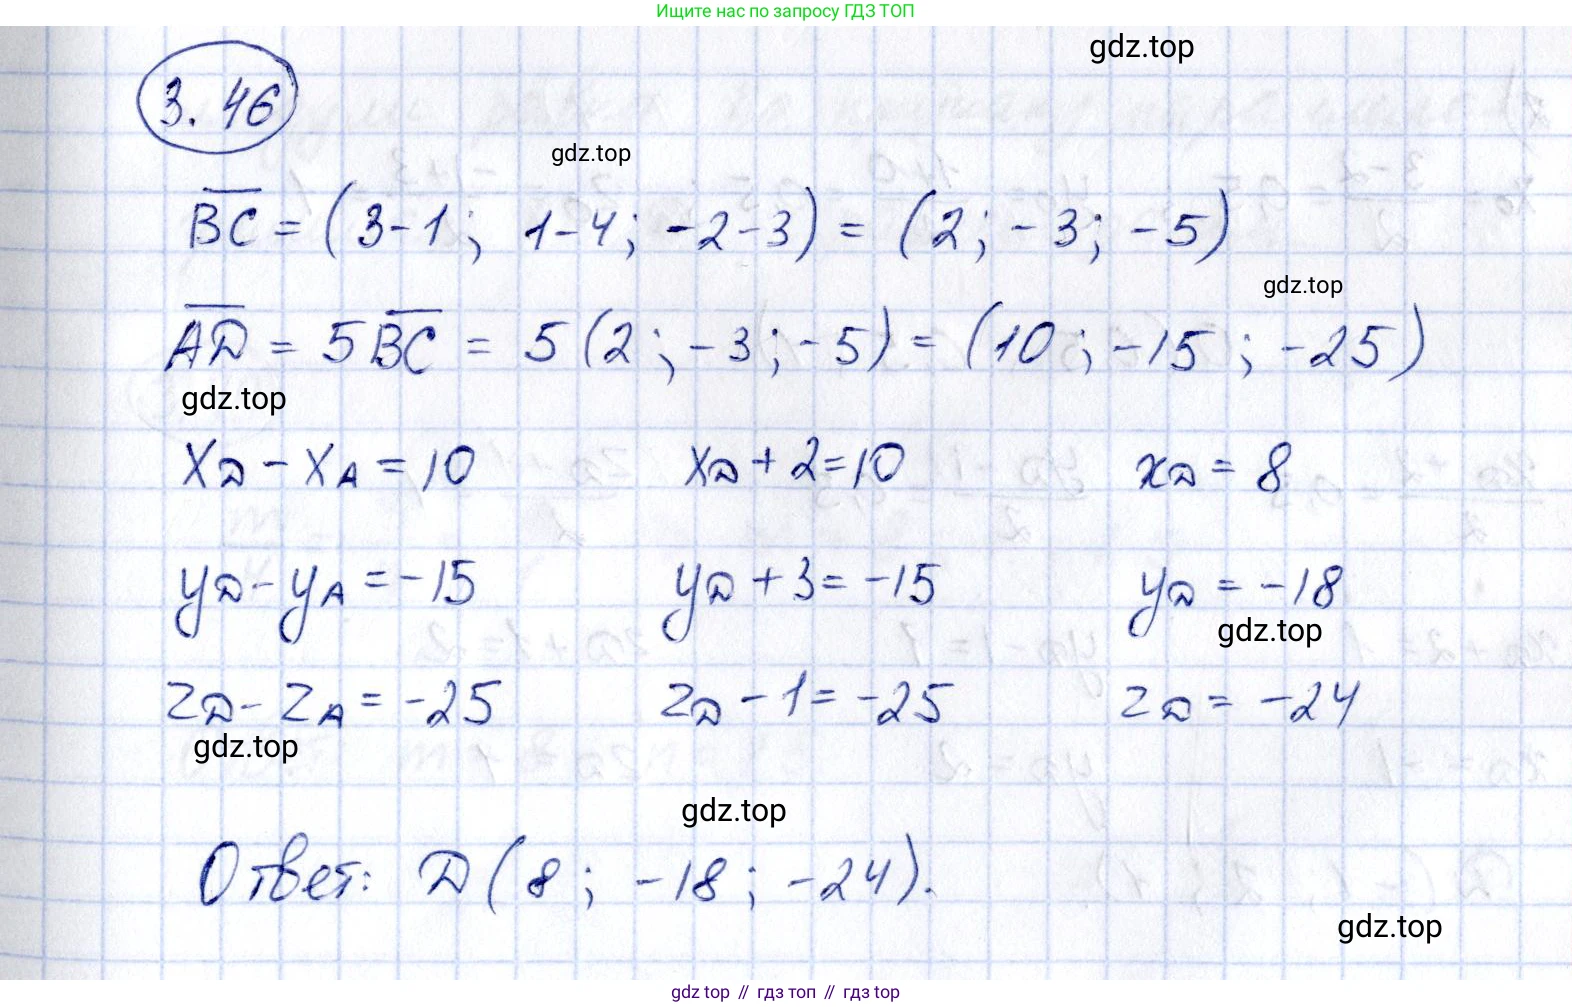 Ищите нас по запросу ГДЗ ТОП
gdz.top
3.46
gdz.top
BC = (3-1; 1-4; -2-3) = (2; -3; -5)
gdz.top
AD = 5BC = 5(2; -3; -5) = (10; -15; -25)
gdz.top
xD - xA = 10 xD + 2 = 10 xD = 8
yD - yA = -15 yD + 3 = -15 yD = -18
gdz.top
zD - zA = -25 zD - 1 = -25 zD = -24
gdz.top
gdz.top
Ответ: D(8; -18; -24).
gdz.top
gdz top // гдз топ // гдз top